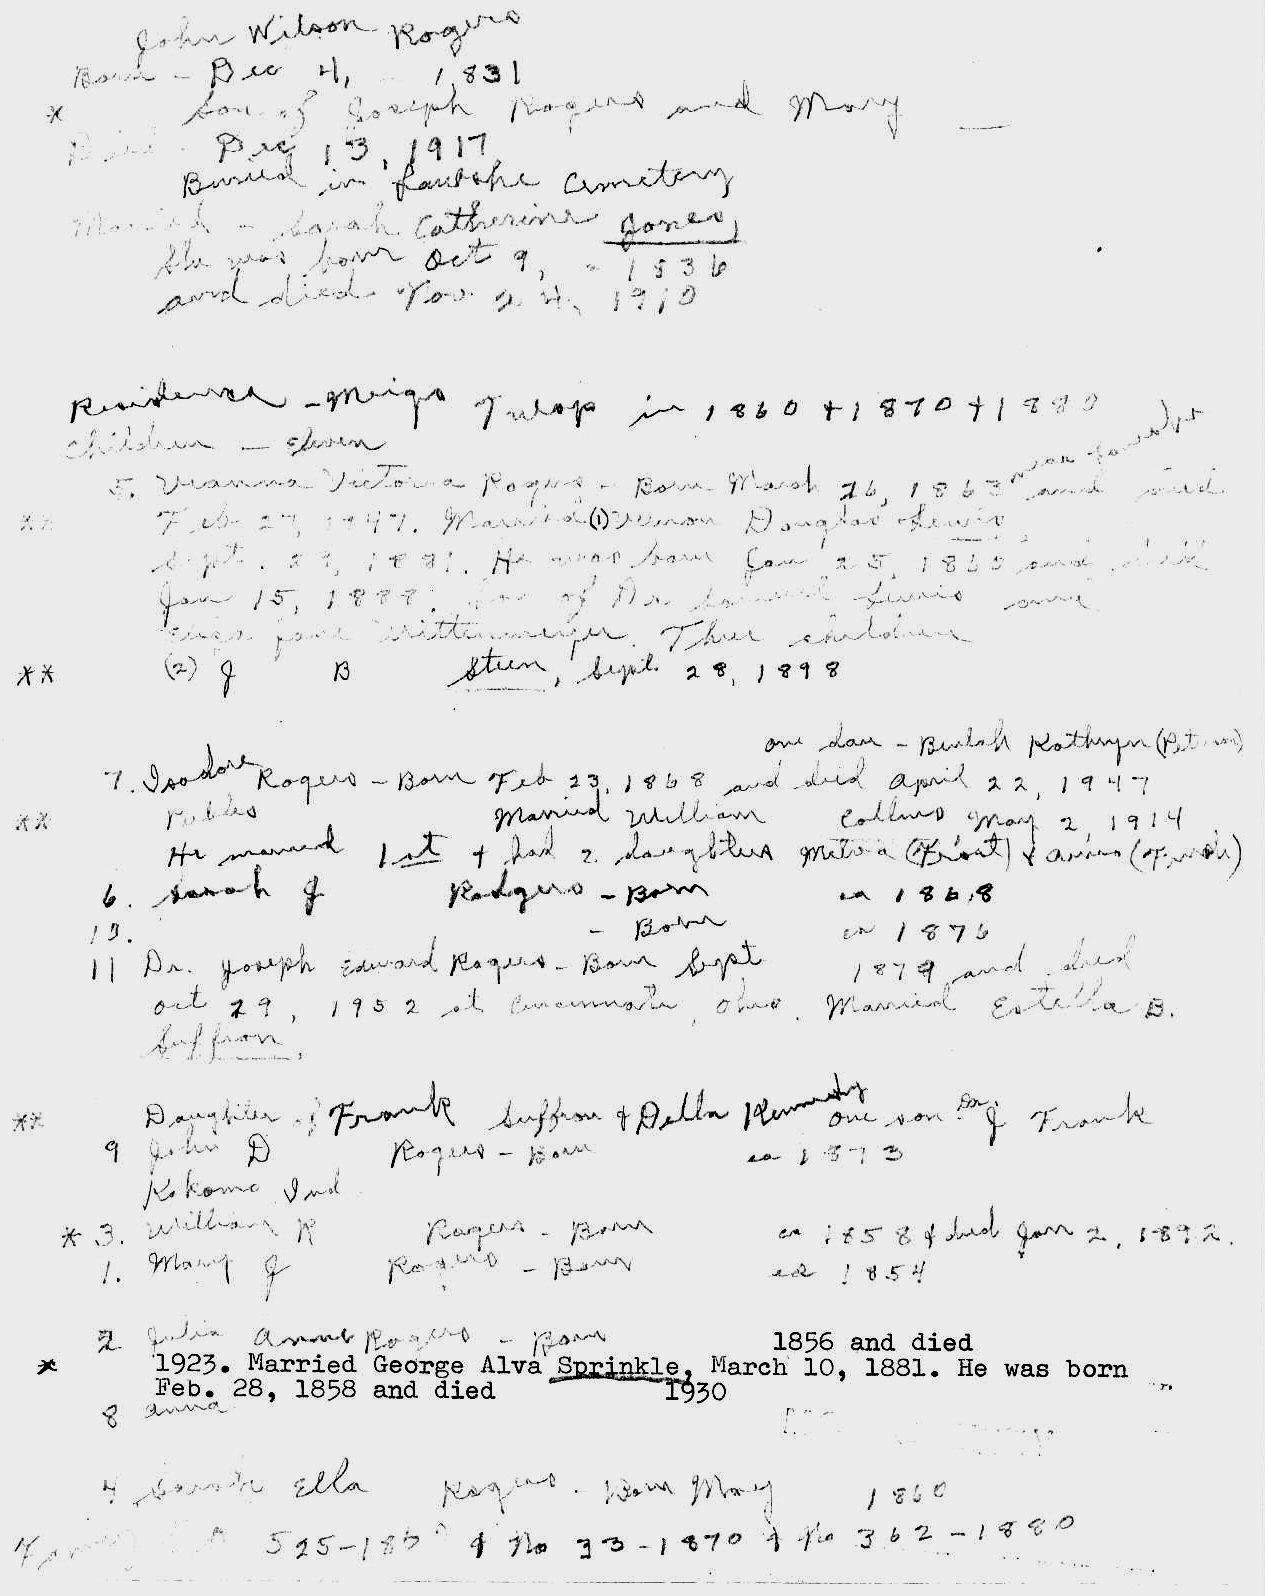 John Wilson Rogers
Born - Dec 4, - 1831
* Son of Joseph Rogers and Mary —
Died - Dec 13, 1917
Buried in Cemetery
Married - Sarah Catherine Jones,
She was born Oct 9, - 1836
and died Nov 24, 1910
Residence - Meigs Twsp in 1860 + 1870 + 1880
Children - Eleven
5. Victoria Rogers - Born March 26, 1863 and died
** Feb 27, 1947. Married (1) Vernon Douglas Lewis,
Sept. 29, 1881. He was born Jan 25, 1860 and died
Jan 15, 1888. Son of Dr. Samuel Lewis and
Eliza Jane Wittenmeyer. Three children
** (2) J B Steen, Sept. 28, 1898
one dau - Beulah Kathryn
7. Isadore Rogers - Born Feb 23, 1868 and died April 22, 1947
** Peebles Married William Collins, May 2, 1914
He married 1st + had 2 daughters
6. Sarah J Rodgers - Born ca 1868
10. - Born ca 1876
11 Dr. Joseph Edward Rogers - Born Sept 1879 and died
Oct 29, 1952 at Cincinnati, Ohio. Married Estella B.
Suffron.
** Daughter of Frank Suffron & Della Kennedy one son Dr. J Frank
9 John D Rogers - Born ca 1873
Kokomo Ind
* 3. William R Rogers - Born ca 1858 & died Jan 2, 1892.
1. Mary J Rogers - Born ca 1854
2 Julia Anne Rogers - Born 1856 and died
* 1923. Married George Alva Sprinkle, March 10, 1881. He was born
Feb. 28, 1858 and died 1930
8 Anna
4 Sarah Ella Rogers. Born May 1860
525-1860 & No 33-1870 & No 362-1880